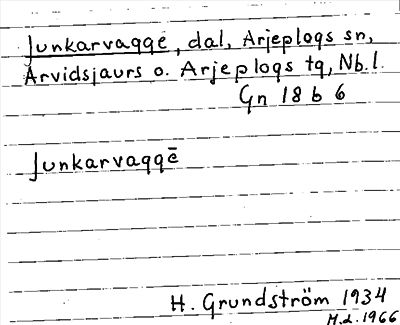 Junkarvagge, dal, Arjeplogs sn,
Arvidsjaurs o. Arjeplogs tg, Nb.l.
Gn 18 b 6
Junkarvaggē
H. Grundström 1934
M.d. 1966